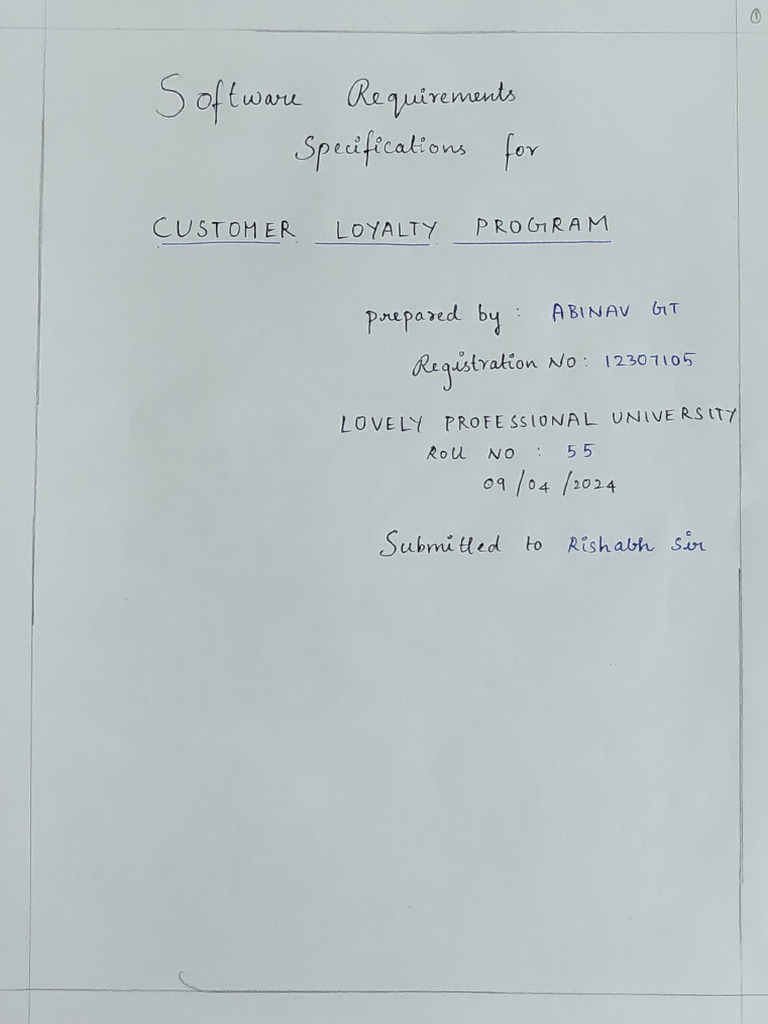 ①
Software Requirements
Specifications for
CUSTOMER LOYALTY PROGRAM
prepared by : ABINAV GT
Registration No: 12307105
LOVELY PROFESSIONAL UNIVERSITY
ROLL NO : 55
09/04/2024
Submitted to Rishabh Sir